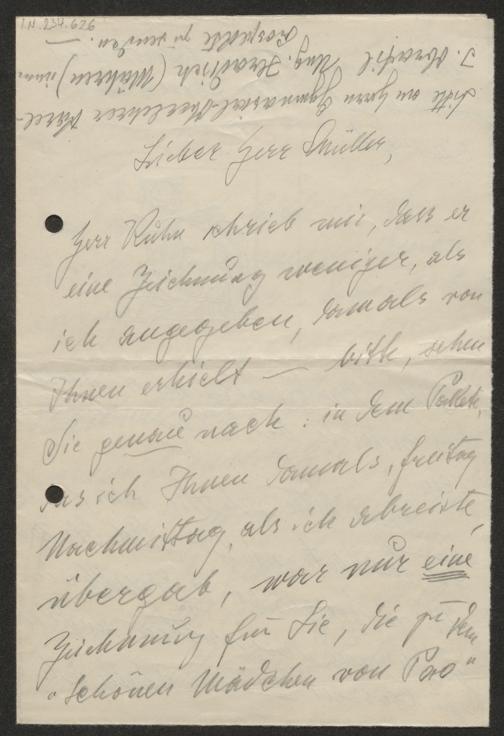 I.N. 234.626
Bitte an Herrn Gymnasial-Oberlehrer
J. Ung. Hradisch (Mähren) einen
Prospekte zu senden. —
Lieber Herr Müller,
Herr Kuhn schrieb mir, dass er
eine Zeichnung weniger, als
ich angegeben, damals von
Ihnen erhielt — bitte, sehen
Sie genau nach: in dem Paket,
das ich Ihnen damals, freitag
Nachmittag, als ich abreiste,
übergab, war nur eine
Zeichnung für Sie, die zu dem
"Schönen Mädchen von Pao"